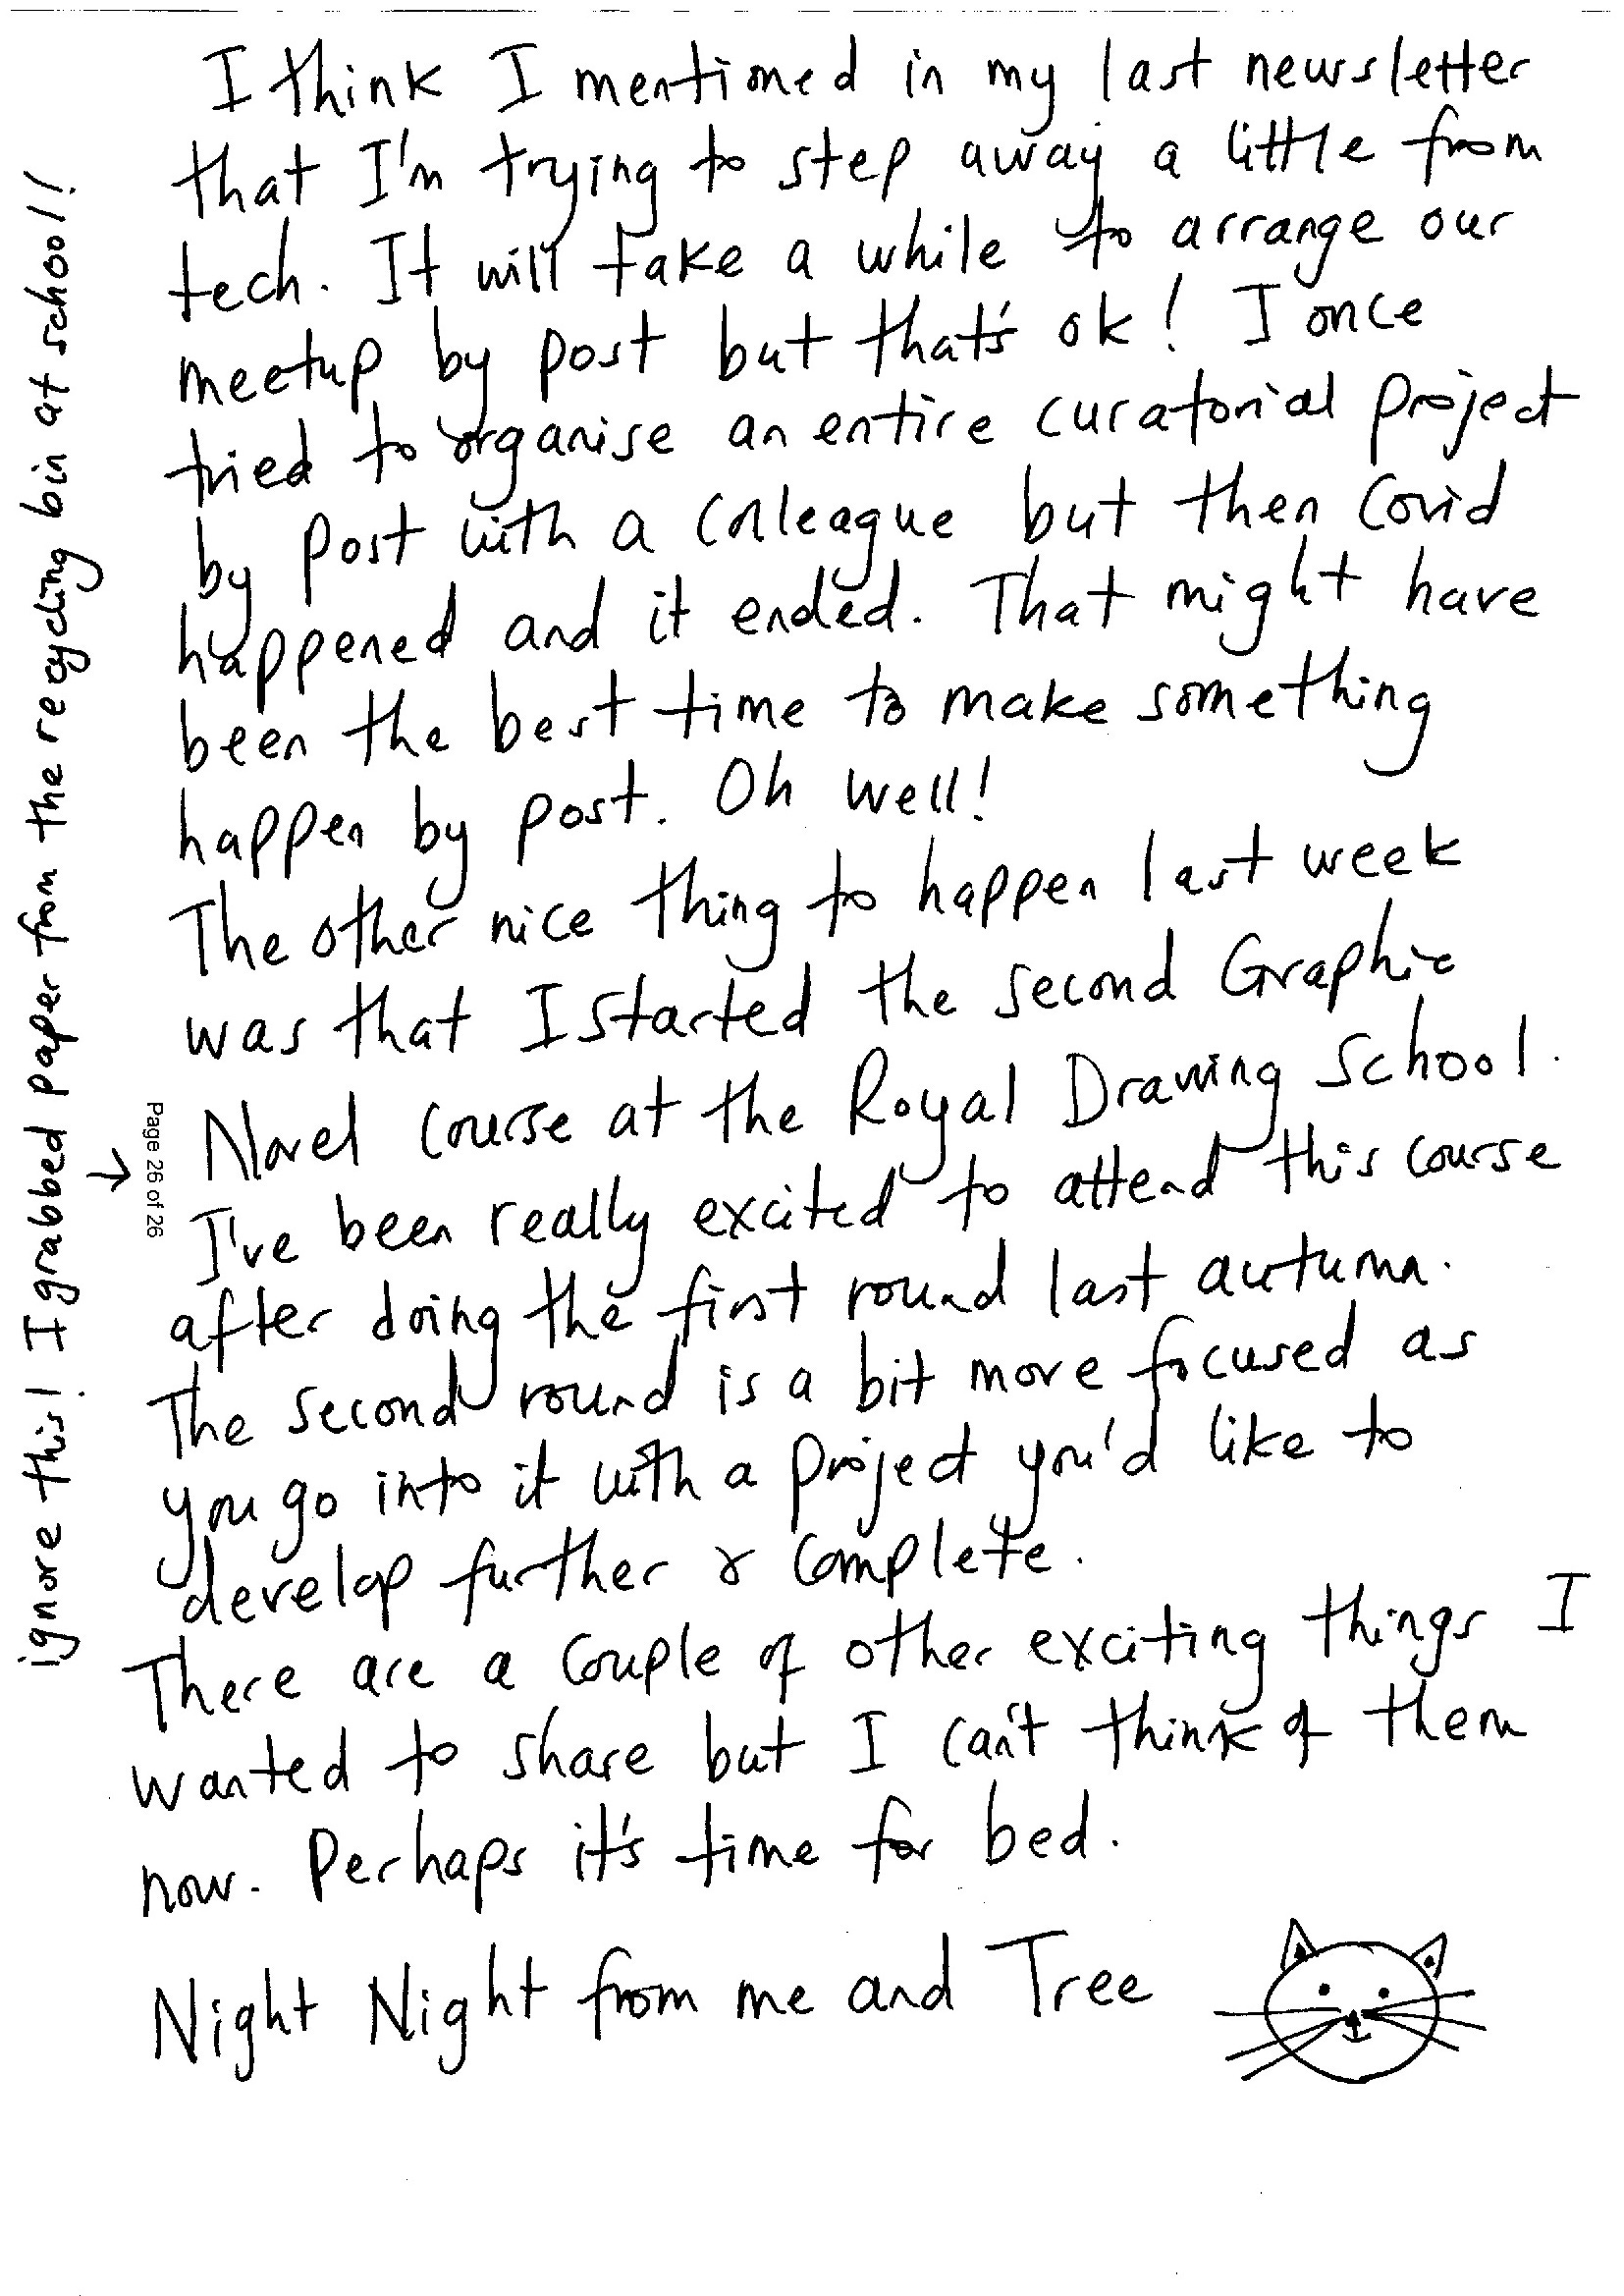 I think I mentioned in my last newsletter
that I'm trying to step away a little from
tech. It will take a while to arrange our
meetup by post but that's ok! I once
tried to organise an entire curatorial project
by post with a colleague but then Covid
happened and it ended. That might have
been the best time to make something
happen by post. Oh well!
The other nice thing to happen last week
was that I started the second Graphic
Novel course at the Royal Drawing School.
I've been really excited to attend this course
after doing the first round last autumn.
The second round is a bit more focused as
you go into it with a project you'd like to
develop further & complete.
There are a couple of other exciting things I
wanted to share but I can't think of them
now. Perhaps it's time for bed.
Night Night from me and Tree
ignore this! I grabbed paper from the recycling bin at school!
→
Page 26 of 26